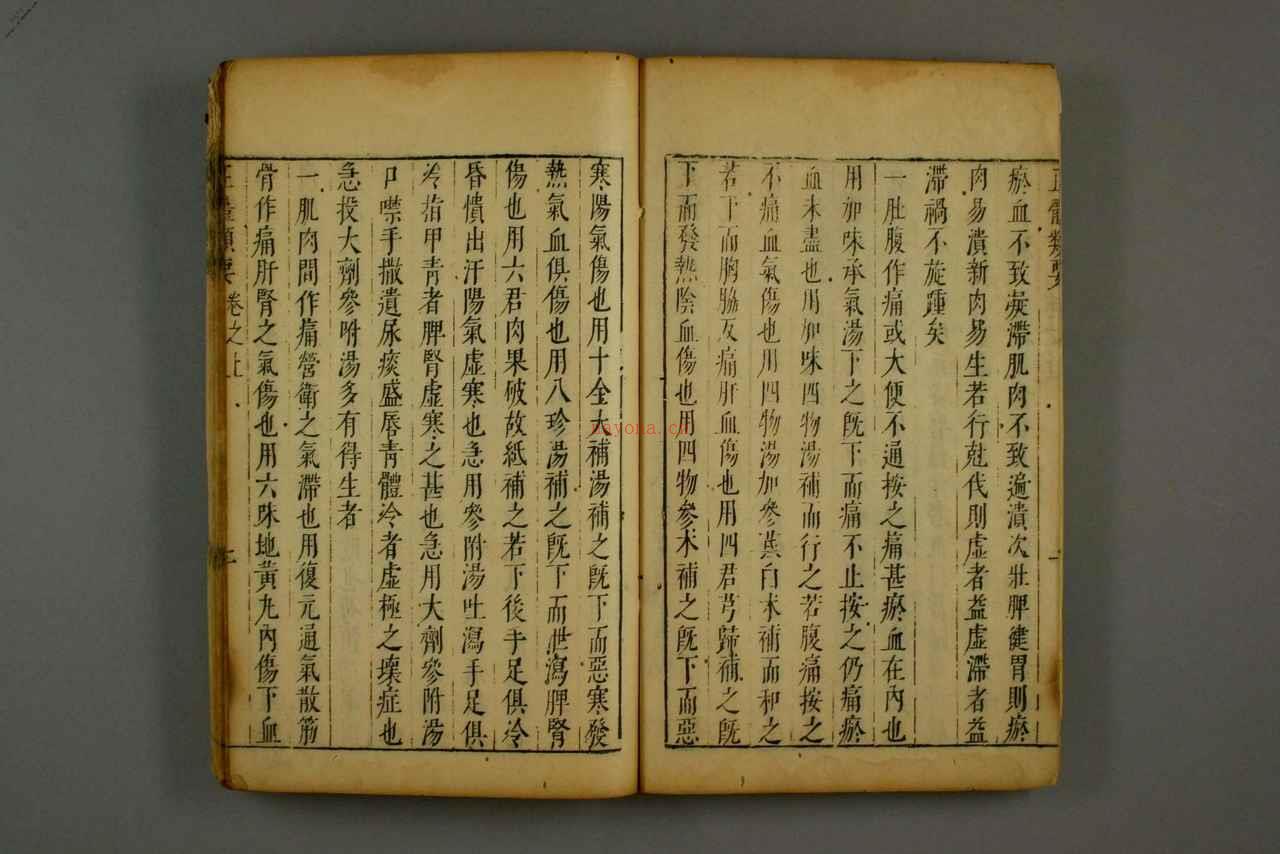 正體類要
瘀血不致凝滯肌肉不致遍潰次壯脾健胃則瘀
肉易潰新肉易生若行尅伐則虛者益虛滯者益
滯禍不旋踵矣
一肚腹作痛或大便不通按之痛甚瘀血在內也
用加味承氣湯下之既下而痛不止按之仍痛瘀
血未盡也用加味四物湯補而行之若腹痛按之
不痛血氣傷也用四物湯加參茋白术補而和之
若下而胸脇反痛肝血傷也用四君芎歸補之既
下而發熱陰血傷也用四物參术補之既下而惡
寒陽氣傷也用十全大補湯補之既下而惡寒發
熱氣血俱傷也用八珍湯補之既下而泄瀉脾腎
傷也用六君肉果破故紙補之若下後手足俱冷
昏憒出汗陽氣虛寒也急用參附湯吐瀉手足俱
冷指甲青者脾腎虛寒之甚也急用大劑參附湯
口噤手撒遺尿痰盛唇青體冷者虛極之壞症也
急投大劑參附湯多有得生者
一肌肉間作痛營衛之氣滯也用復元通氣散筋
骨作痛肝腎之氣傷也用六味地黃丸內傷下血
正體類要 卷之上 二
nayona.cn